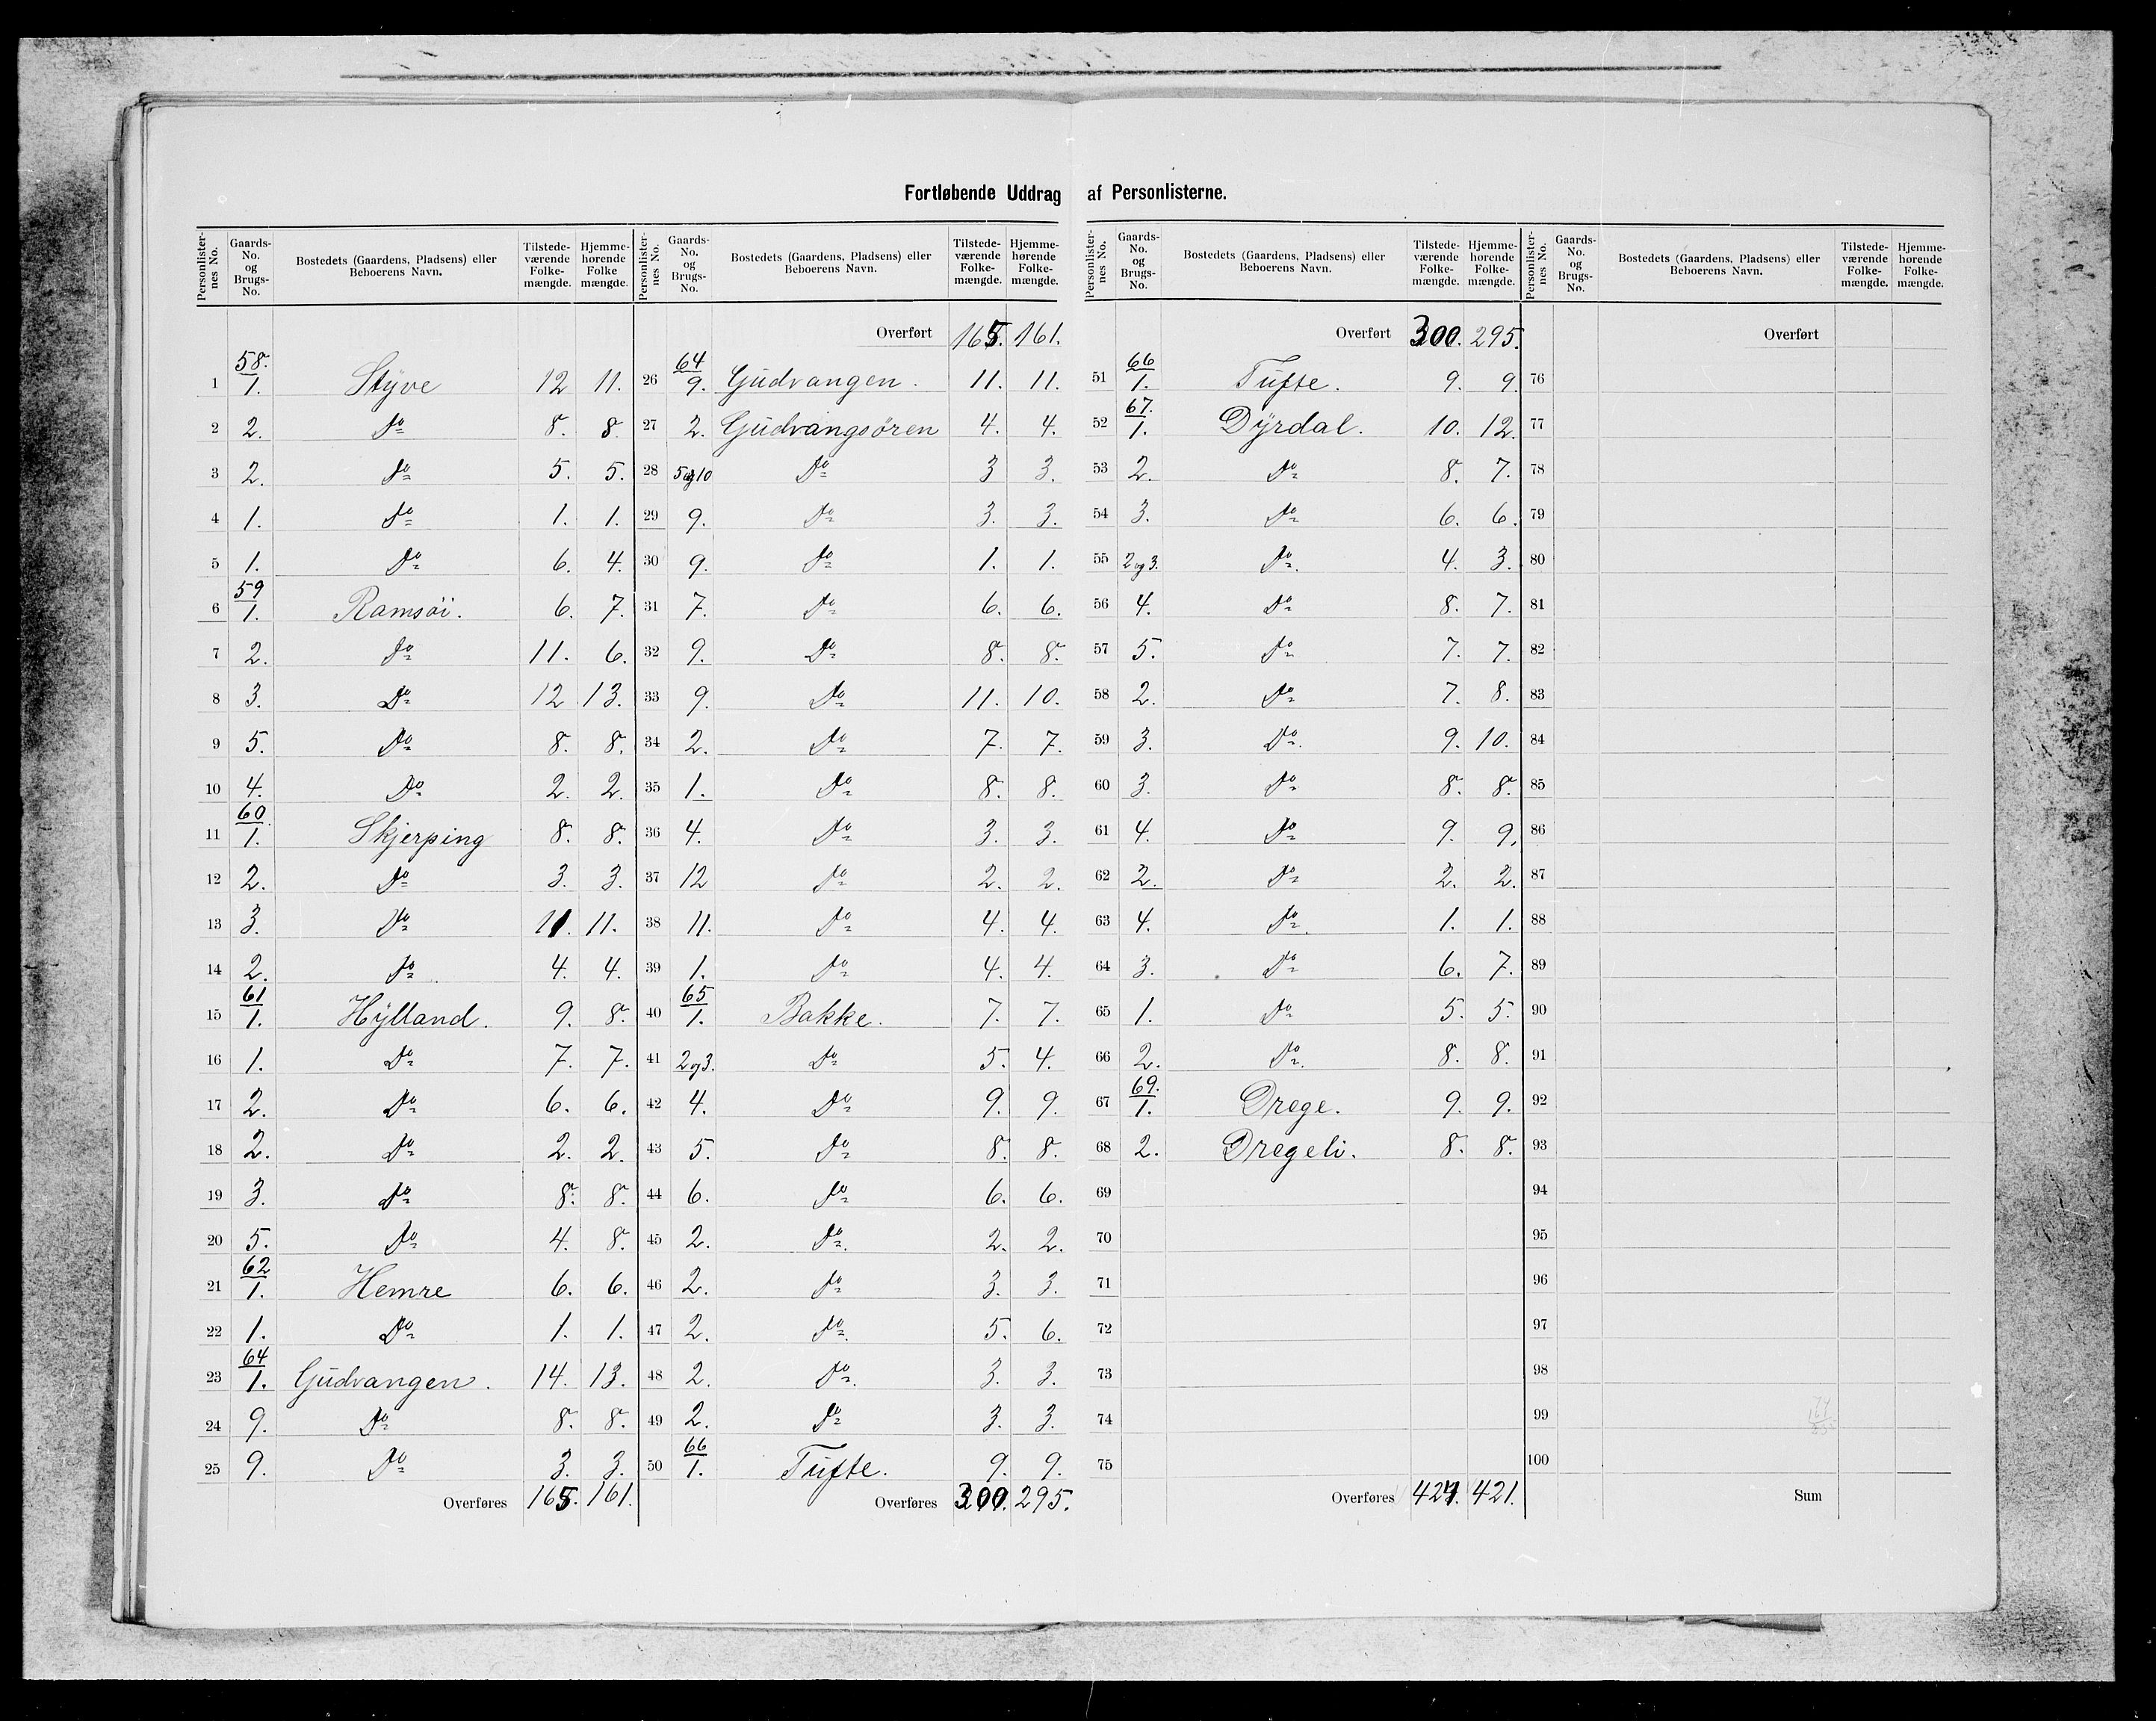 Fortløbende Uddrag af Personlisterne.
Personlisternes No. Gaards-No. og Brugs-No. Bostedets (Gaardens, Pladsens) eller Beboerens Navn. Tilstedeværende Folkemængde. Hjemmehørende Folkemængde.
1 58./1. Styve 12 11.
2 2. Do 8. 8.
3 2. Do 5. 5.
4 1. Do 1. 1.
5 1. Do 6. 4.
6 59/1. Ramsöi. 6. 7.
7 2. Do 11. 6.
8 3. Do 12 13.
9 5. Do 8. 8.
10 4. Do 2. 2.
11 60/1. Skjerping 8. 8.
12 2. Do 3. 3.
13 3. Do 11. 11.
14 2. Do 4. 4.
15 61/1. Hylland. 9. 8.
16 1. Do 7. 7.
17 2. Do 6. 6.
18 2. Do 2. 2.
19 3. Do 8. 8.
20 5. Do 4. 8.
21 62/1. Hemre 6. 6.
22 1. Do 1. 1.
23 64/1. Gudvangen. 14. 13.
24 9. Do 8. 8.
25 9. Do 3. 3.
Overføres 165. 161.
Personlisternes No. Gaards-No. og Brugs-No. Bostedets (Gaardens, Pladsens) eller Beboerens Navn. Tilstedeværende Folkemængde. Hjemmehørende Folkemængde.
Overført 165. 161.
26 64/9. Gudvangen. 11. 11.
27 2. Gudvangsören 4. 4.
28 5og10 Do 3 3.
29 9. Do 3. 3.
30 9. Do 1. 1.
31 7. Do 6. 6.
32 9. Do 8. 8.
33 9. Do 11. 10.
34 2. Do 7. 7.
35 1. Do 8. 8.
36 4. Do 3. 3.
37 12 Do 2. 2.
38 11. Do 4. 4.
39 1. Do 4. 4.
40 65/1. Bakke. 7. 7.
41 2og3. Do 5. 4.
42 4. Do 9. 9.
43 5. Do 8. 8.
44 6. Do 6. 6.
45 2. Do. 2. 2.
46 2. Do 3. 3.
47 2. Do. 5. 6.
48 2. Do. 3. 3.
49 2. Do 3. 3.
50 66/1. Tufte. 9. 9.
Overføres 300. 295.
Personlisternes No. Gaards-No. og Brugs-No. Bostedets (Gaardens, Pladsens) eller Beboerens Navn. Tilstedeværende Folkemængde. Hjemmehørende Folkemængde.
Overført 300. 295.
51 66/1. Tufte. 9. 9.
52 67./1. Dyrdal. 10. 12.
53 2. Do 8. 7.
54 3. Do 6. 6.
55 2og3. Do. 4. 3.
56 4. Do 8. 7.
57 5. Do 7. 7.
58 2. Do 7. 8.
59 3. Do. 9. 10.
60 3. Do 8. 8.
61 4. Do 9. 9.
62 2. Do 2. 2.
63 4. Do. 1. 1.
64 3. Do 6. 7.
65 1. Do 5. 5.
66 2. Do. 8. 8.
67 69./1. Drege. 9. 9.
68 2. Dregeli. 8. 8.
69
70
71
72
73
74
75
Overføres 424. 421.
Personlisternes No. Gaards-No. og Brugs-No. Bostedets (Gaardens, Pladsens) eller Beboerens Navn. Tilstedeværende Folkemængde. Hjemmehørende Folkemængde.
Overført
76
77
78
79
80
81
82
83
84
85
86
87
88
89
90
91
92
93
94
95
96
97
98
99
100
Sum